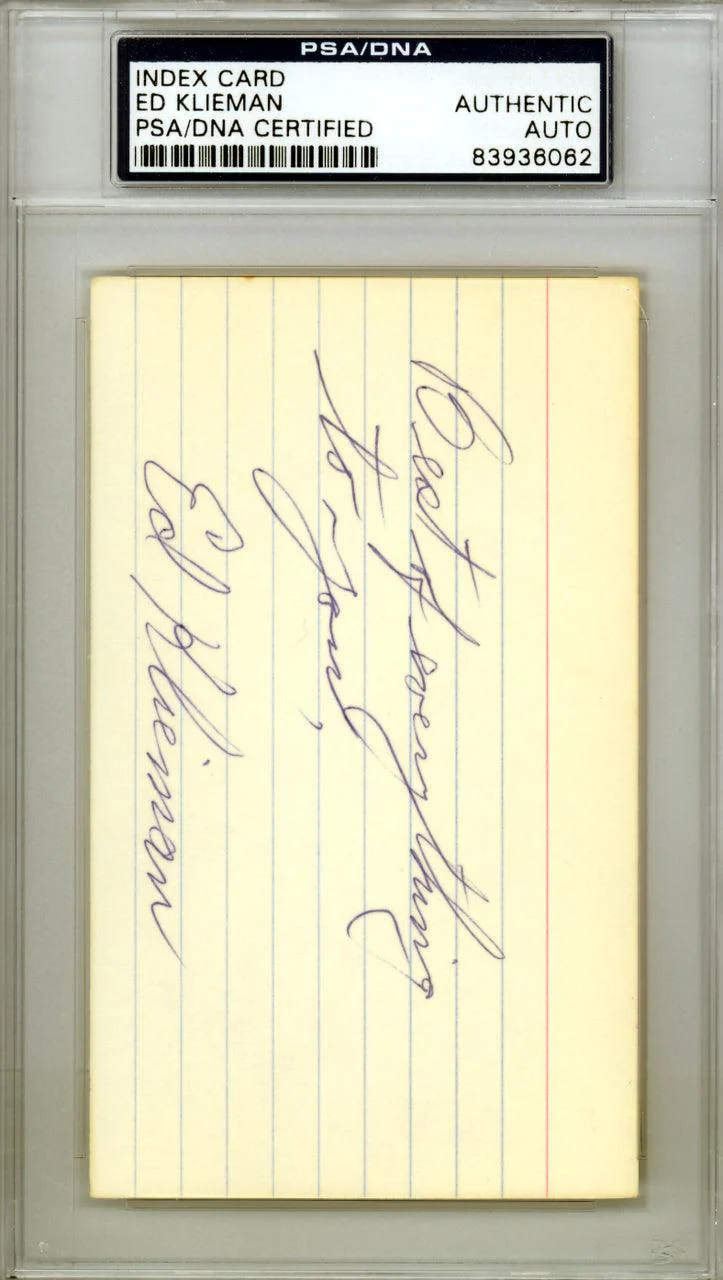 PSA/DNA
INDEX CARD
ED KLIEMAN
PSA/DNA CERTIFIED
AUTHENTIC
AUTO
83936062
Best of everything
to you,
Ed Klieman